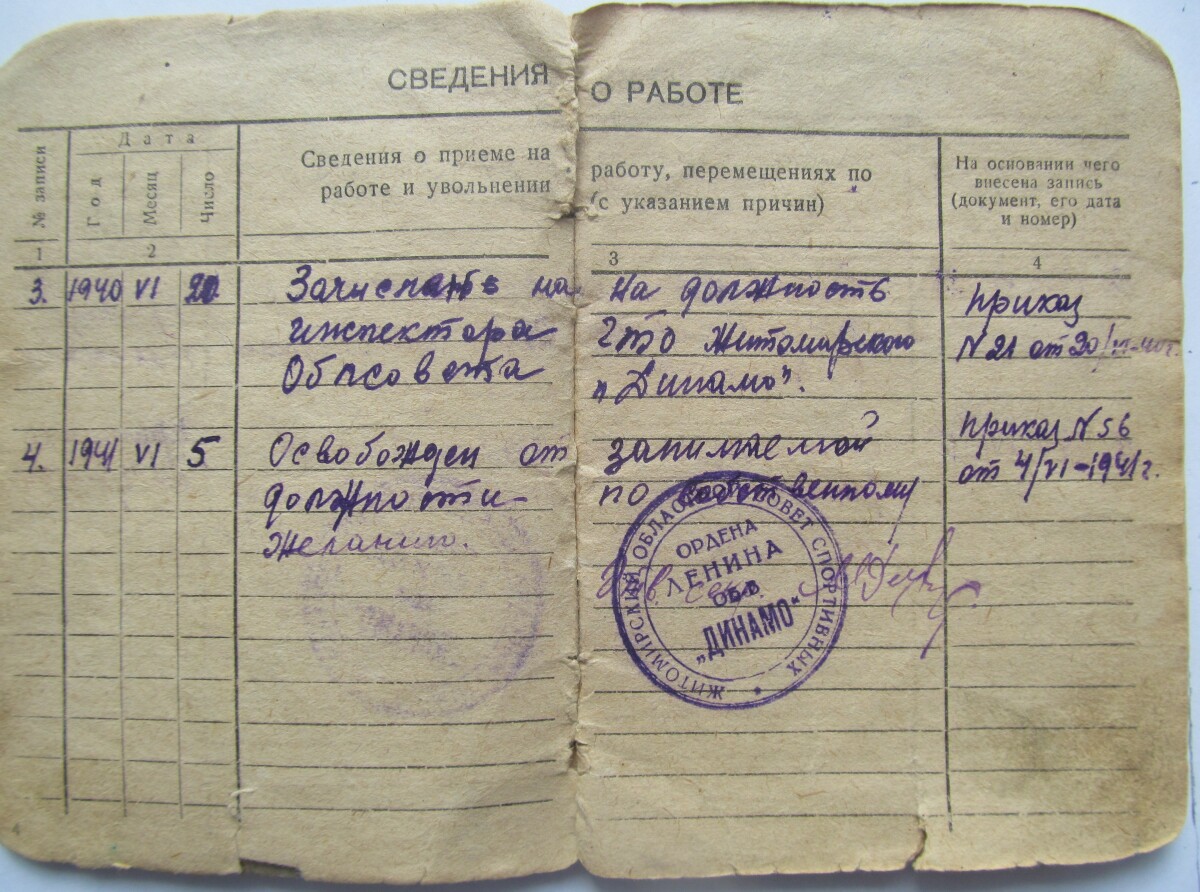 СВЕДЕНИЯ О РАБОТЕ
№ записи
Дата
Год
Месяц
Число
Сведения о приеме на работу, перемещениях по
работе и увольнении (с указанием причин)
На основании чего
внесена запись
(документ, его дата
и номер)
1 2 3 4
3. 1940 VI 20 Зачислить на на должность Приказ
инспектора ГТО Житомирского N 21 от 20/VI-40 г.
Облсовета „Динамо".
4. 1941 VI 5 Освобожден от занимаемой Приказ N 56
должности по собственному от 4/VI-1941 г.
желанию.
ЖИТОМИРСКИЙ ОБЛАСТНОЙ СОВЕТ СПОРТИВНЫХ
ОРДЕНА
ЛЕНИНА
ОБ-В
„ДИНАМО"
4